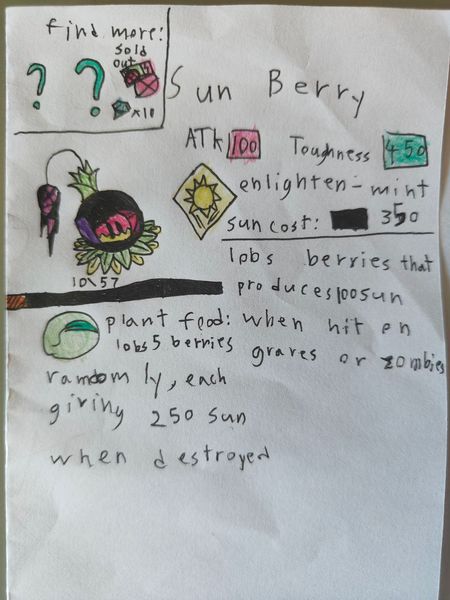 find more:
sold
out
? ?
x10
Sun Berry
ATK 100 Toughness 450
enlighten-mint
sun cost: 350
10\57
lobs berries that
produces 100sun
when hit on
graves or zombies
plant food:
lobs 5 berries
randomly, each
giving 250 sun
when destroyed